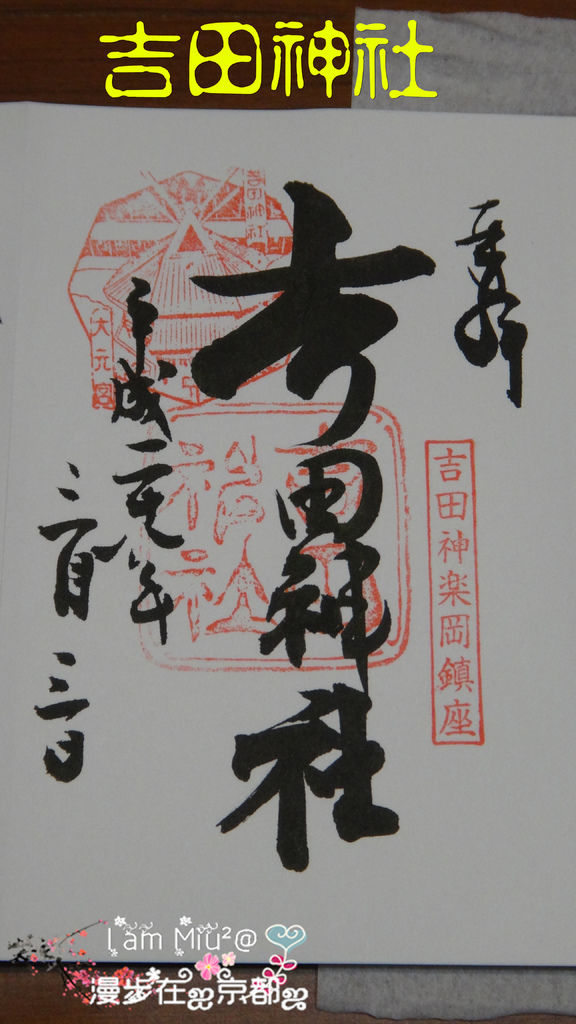 吉田神社
奉拝
吉田神楽岡鎮座
吉田神社
吉田神社
大元宮
平成二十八年
三月三日
I am Miu²@
漫步在ஐ京都ஐ